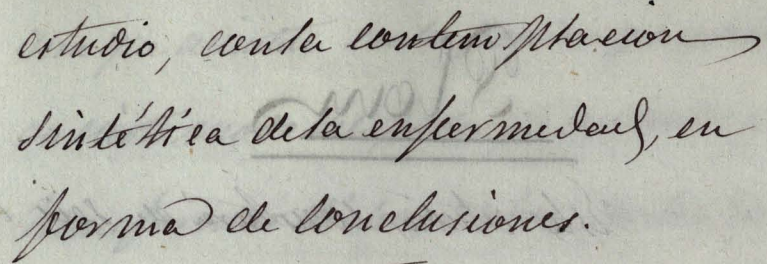 estudio, con la contemplacion
sintética de la enfermedad, en
forma de conclusiones.